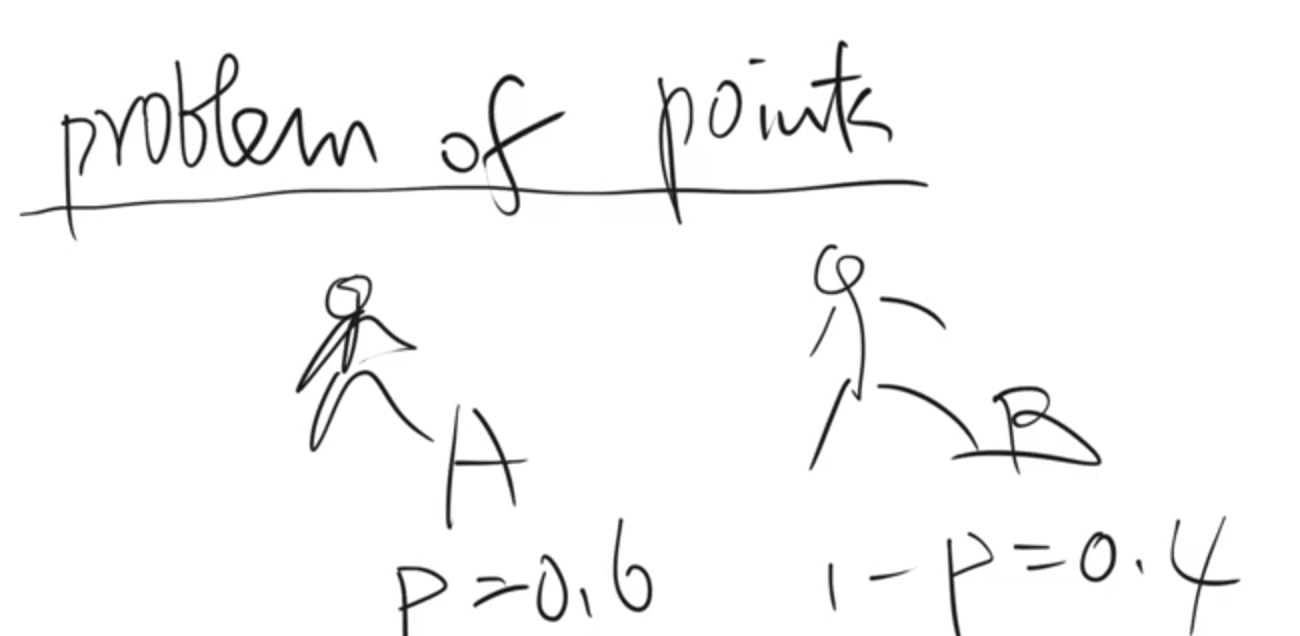 problem of points
A B
p=0.6 1-p=0.4